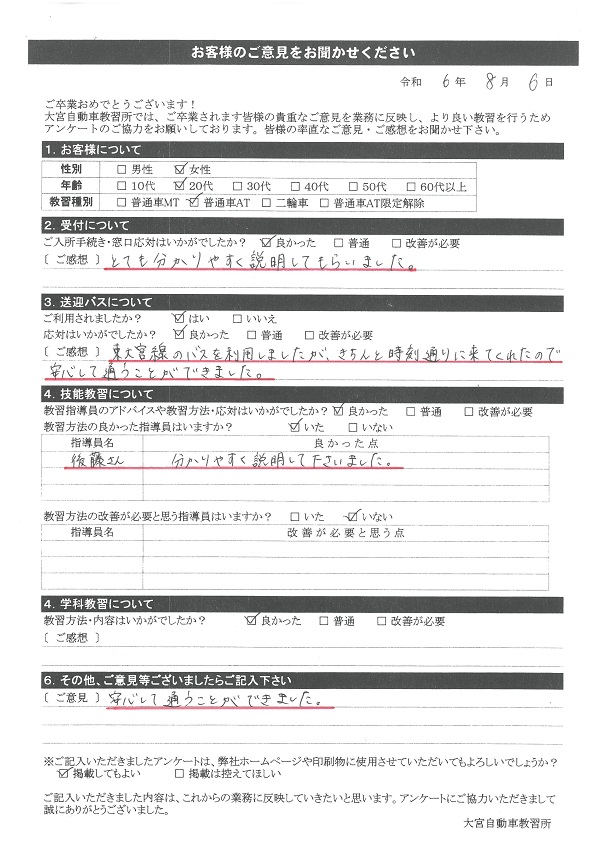 お客様のご意見をお聞かせください
令和 6 年 8 月 6 日
ご卒業おめでとうございます！
大宮自動車教習所では、ご卒業されます皆様の貴重なご意見を業務に反映し、より良い教習を行うため
アンケートのご協力をお願いしております。皆様の率直なご意見・ご感想をお聞かせ下さい。
1. お客様について
性別 □ 男性 ☑ 女性
年齢 □ 10代 ☑ 20代 □ 30代 □ 40代 □ 50代 □ 60代以上
教習種別 □ 普通車MT ☑ 普通車AT □ 二輪車 □ 普通車AT限定解除
2. 受付について
ご入所手続き・窓口応対はいかがでしたか？ ☑ 良かった □ 普通 □ 改善が必要
[ ご感想 ] とても分かりやすく説明してもらいました。
3. 送迎バスについて
ご利用されましたか？ ☑ はい □ いいえ
応対はいかがでしたか？ ☑ 良かった □ 普通 □ 改善が必要
[ ご感想 ] 東大宮線のバスを利用しましたが、きちんと時刻通りに来てくれたので
安心して通うことができました。
4. 技能教習について
教習指導員のアドバイスや教習方法・応対はいかがでしたか？ ☑ 良かった □ 普通 □ 改善が必要
教習方法の良かった指導員はいますか？ ☑ いた □ いない
指導員名 良かった点
後藤さん 分かりやすく説明して下さいました。
教習方法の改善が必要と思う指導員はいますか？ □ いた ☑ いない
指導員名 改善が必要と思う点
4. 学科教習について
教習方法・内容はいかがでしたか？ ☑ 良かった □ 普通 □ 改善が必要
[ ご感想 ]
6. その他、ご意見等ございましたらご記入下さい
[ ご意見 ] 安心して通うことができました。
※ご記入いただきましたアンケートは、弊社ホームページや印刷物に使用させていただいてもよろしいでしょうか？
☑ 掲載してもよい □ 掲載は控えてほしい
ご記入いただきました内容は、これからの業務に反映していきたいと思います。アンケートにご協力いただきまして
誠にありがとうございました。
大宮自動車教習所